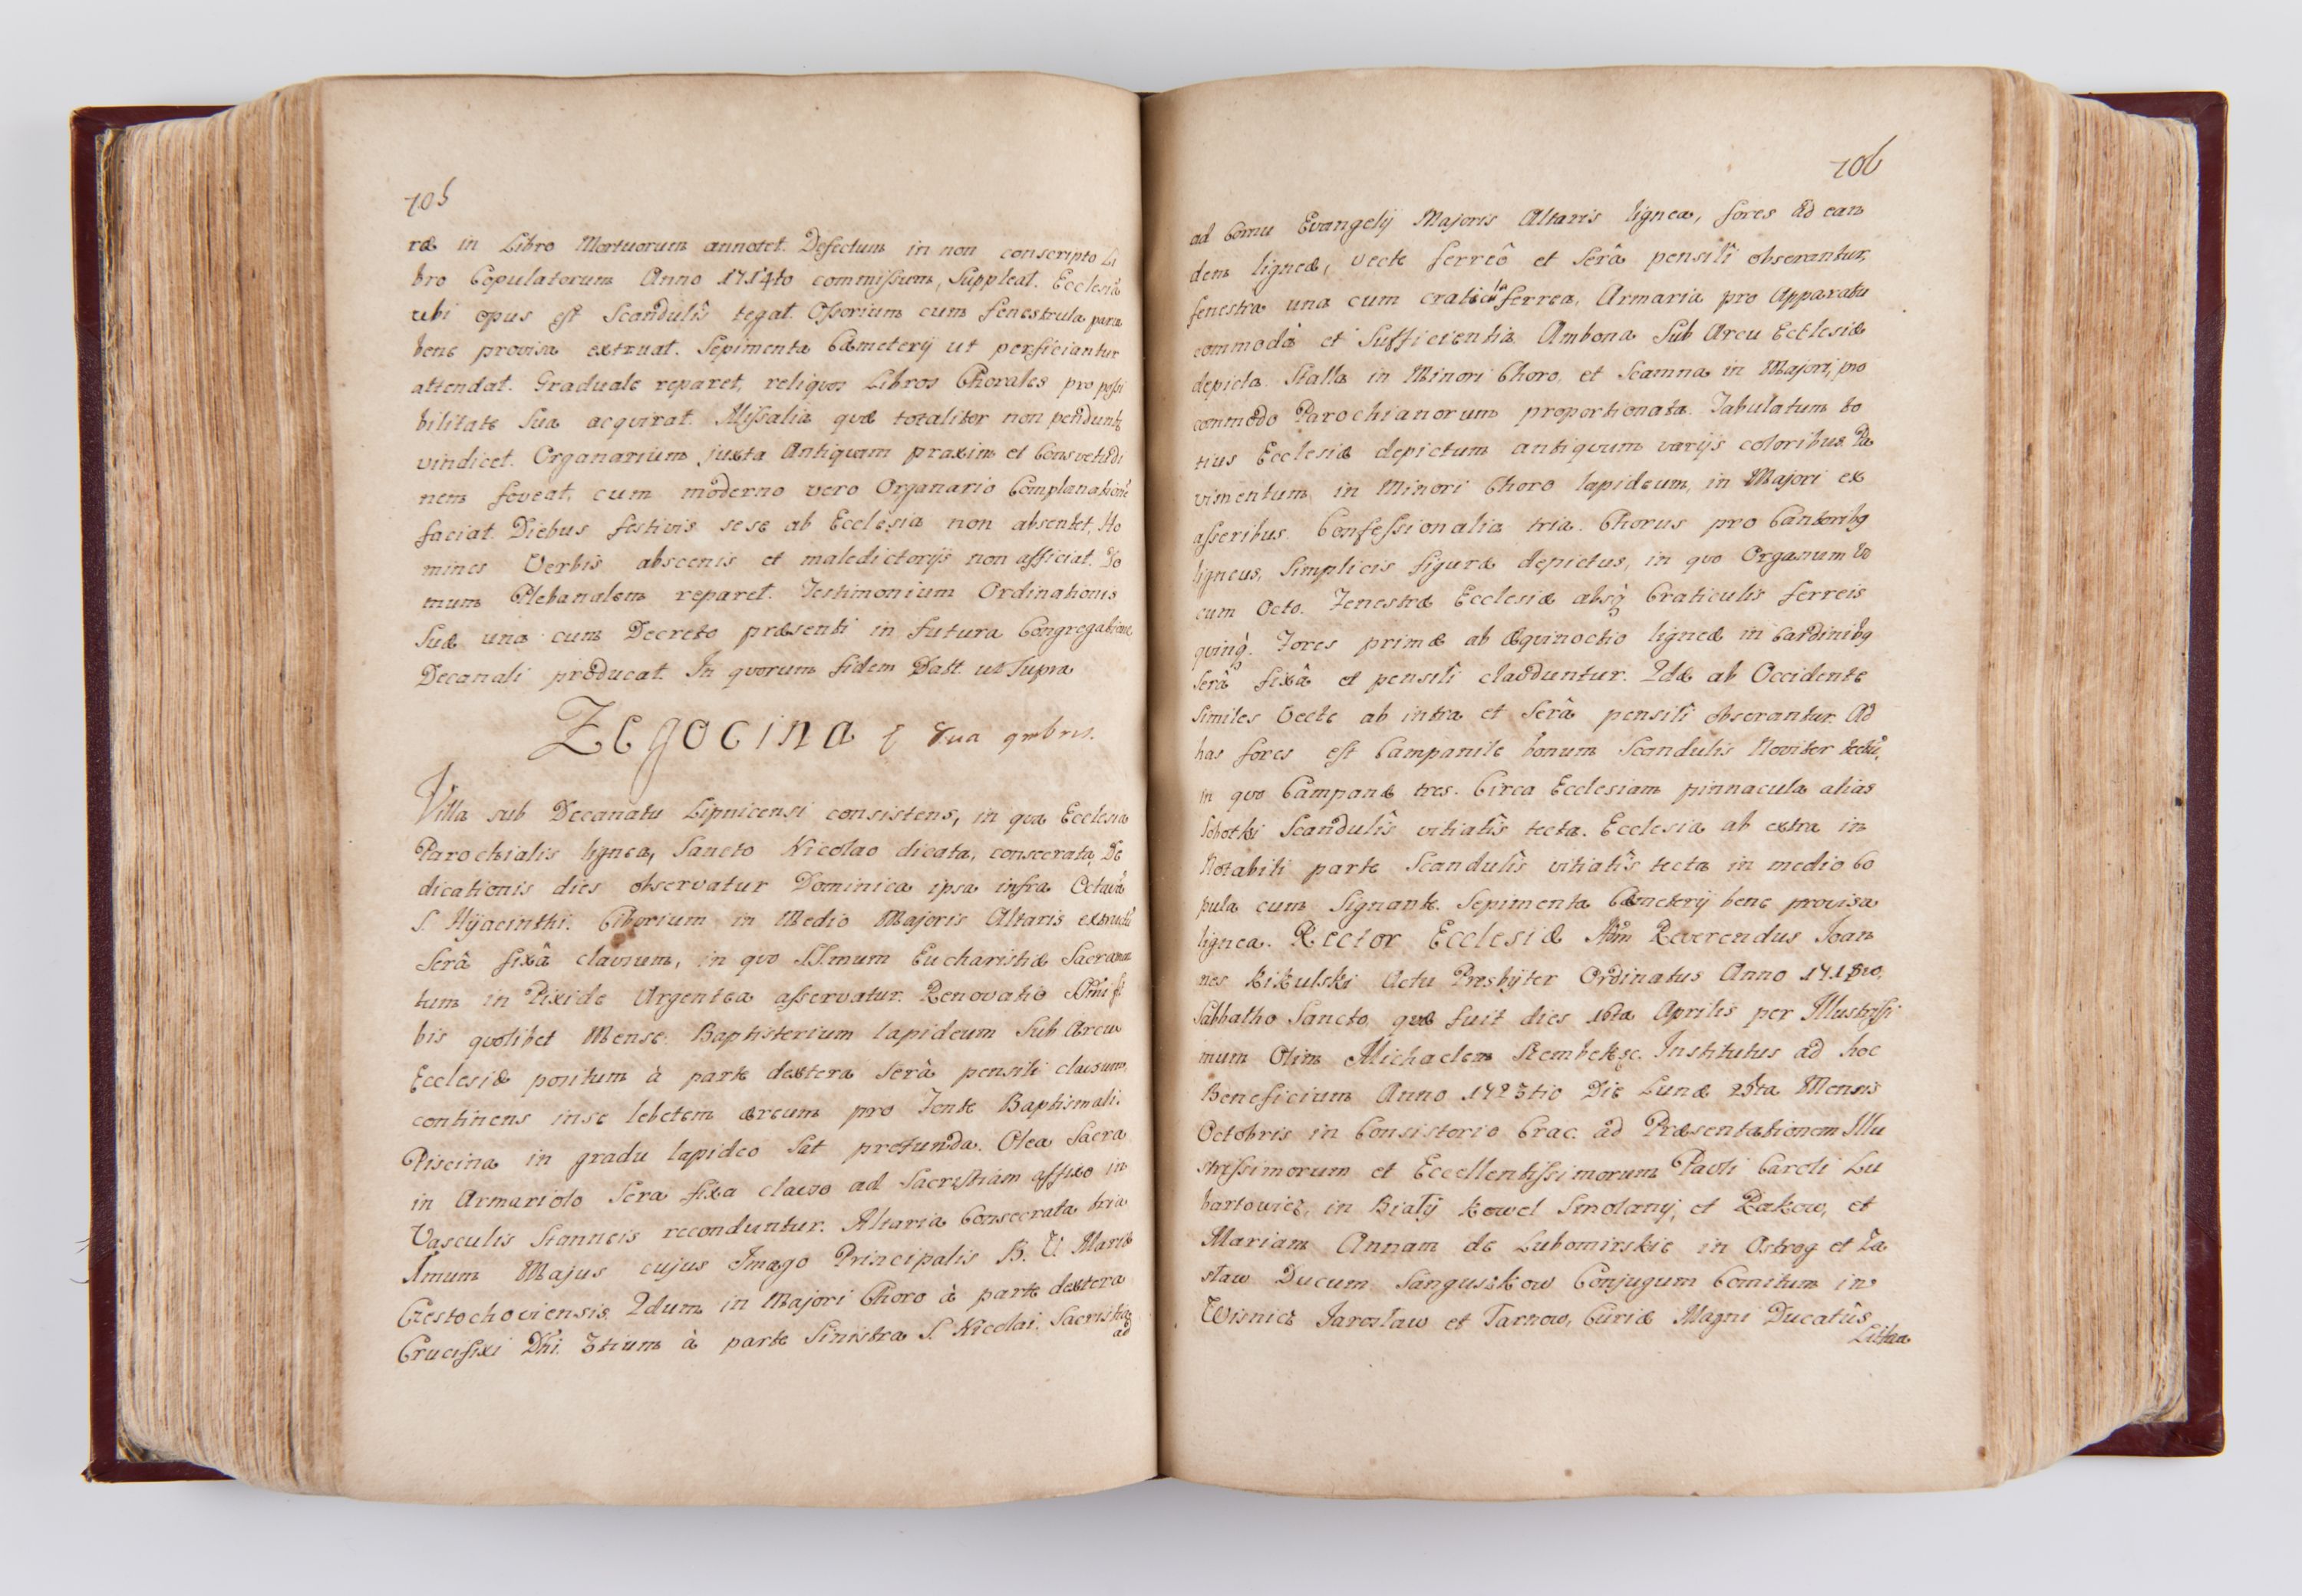 705
ræ in Libro Mortuorum annotet. Defectum in non conscripto Li
bro Copulatorum Anno 1714to commissum, Suppleat. Ecclesiã
ubi opus est Scandulîs tegat. Ossorium cum fenestrula para
bene provisa extruat. Sepimenta Cæmeterij ut perficiantur
attendat. Graduale reparet, reliquos Libros Chorales pro possi
bilitate Sua acquirat. Missalia quæ totaliter non
vindicet. Organarium juxta Antiquam praxim et Consvetudi
nem foveat, cum moderno vero Organario Complanationẽ
faciat. Diebus festivis sese ab Ecclesia non absentet, Ho
mines Verbis abscenis et maledictorijs non afficiat. Do
mum Plebanalem reparet. Testimonium Ordinationis
Suæ una cum Decreto præsenti in futura Congregatione
Decanali producat. In quorum fidem Datt. ut Supra
Zegocina 8va qmbris.
Villa sub Decanatu Lipnicensi consistens, in qua Ecclesia
Parochialis lignea, Sancto Nicolao dicata, consecrata, De
dicationis dies observatur Dominica ipsa infra Octavã
S. Hyacinthi. Ciborium in Medio Majoris Altaris extructũ
Serâ fixâ clausum, in quo SS.mum Eucharistiæ Sacramen
tum in Pixide Argentea asservatur. Renovatio SSmi fit
bis quolibet Mense. Baptisterium lapideum Sub Arcu
Ecclesiæ positum à parte dextera Serâ pensili clausum,
continens in se lebetem æreum pro Fonte Baptismali.
Piscina in gradu lapideo Sat profunda. Olea Sacra
in Armariolo Sera fixa clauso ad Sacristiam affixo in
Vasculis Stanneis reconduntur. Altaria Consecrata tria
1mum Majus cujus Imago Principalis B. V. Mariæ
Czestochoviensis. 2dum in Majori Choro à parte dextera
Crucifixi Dñi. 3tium à parte Sinistra S. Nicolai. Sacristia
ad
706
ad Cornu Evangelij Majoris Altaris lignea, fores ad ean
dem ligneæ, vecte ferreô et Serâ pensilî obserantur,
fenestra una cum craticula ferrea, Armaria pro Apparatu
commoda et Sufficientia. Ambona Sub Arcu Ecclesiæ
depicta. Stalla in Minori Choro, et Scamna in Majori, pro
commodo Parochianorum proportionata. Tabulatum to
tius Ecclesiæ depictum antiquum varijs coloribus. Pa
vimentum in Minori Choro lapideum, in Majori ex
asseribus. Confessionalia tria. Chorus pro Cantoribq
ligneus, Simplicis figuræ depictus, in quo Organum Vo
cum Octo. Fenestræ Ecclesiæ absq̀ Craticulis ferreis
quinq̀. Fores primæ ab æquinoctio ligneæ in Cardinibq
Serâ fixâ et pensilî clauduntur. 2dæ ab Occidente
similes Vecte ab intra et Serâ pensilî obserantur. Ad
has fores est Campanile bonum Scandulis Noviter tectũ,
in quo Campanæ tres. Circa Ecclesiam pinnacula alias
Sobotki Scandulîs vitiatîs tecta. Ecclesia ab extra in
Notabili parte Scandulîs vitiatîs tecta in medio Co
pula cum Signante. Sepimenta Cæmeterij bene provisa
lignea. Rector Ecclesiæ Adm Reverendus Joan
nes Kikulski Actu Presbyter Ordinatus Anno
Sabbatho Sancto, quæ fuit dies 16ta Aprilis per Illustrissi
mum Olim Michaelem Szembek &c. Institutus ad hoc
Beneficium Anno 1723tio Die Lunæ 25ta Mensis
Octobris in Consistorio Crac. ad Præsentationem Illu
strissimorum et Excellentissimorum Pauli Caroli Lu
bartowicz, in Biały Kowel Smolany, et Rakow, et
Mariam Annam de Lubomirskie in Ostrog et Za
sław Ducum Sanguszkow Conjugum Comitum in
Wisnicz Jarosław et Tarnow, Curiæ Magni Ducatûs
Lithua